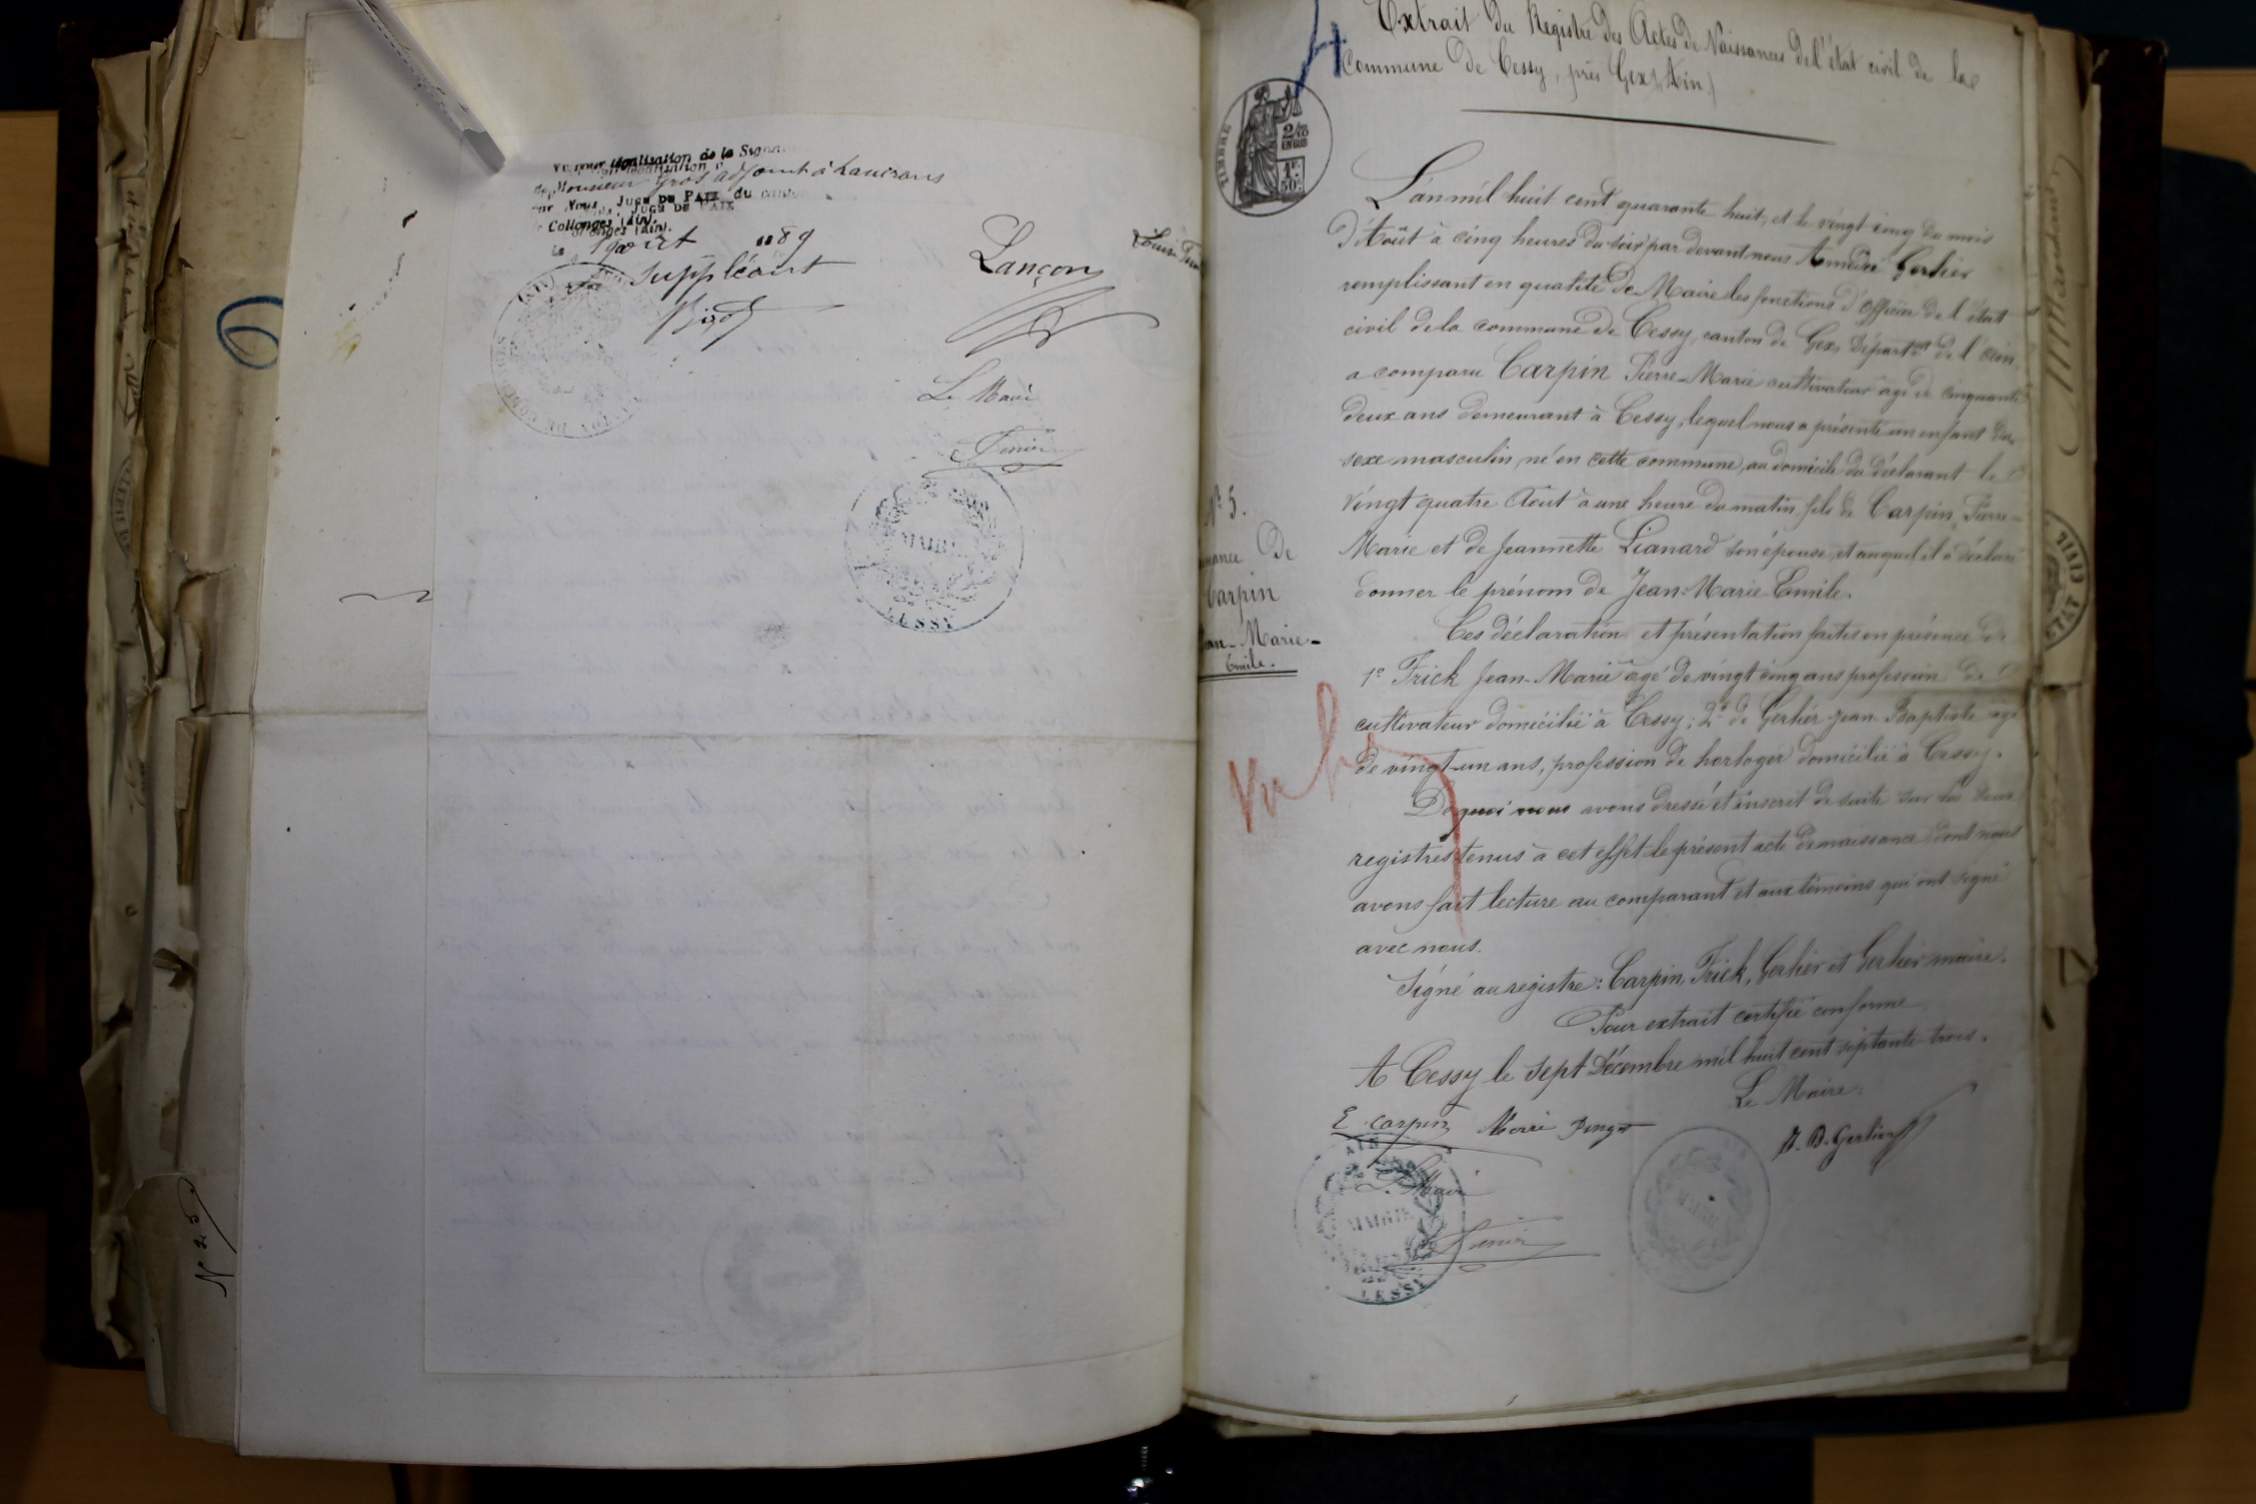 légalisation de la
Monsieur Gros adjoint à Lancrans
Nous, Juge DE PAIX du
Collonges (Ain).
août 1889
suppléant
Lançon
Le Maire
MAIRIE
CESSY
N° 23
Extrait du Registre des Actes de Naissances de l'état civil de la
Commune de Cessy, près Gex (Ain)
TIMBRE
2/10
EN SUS
1F.
50c.
L'an mil huit cent quarante huit, et le vingt cinq du mois
d'Août à cinq heures du soir par devant nous Amédée Gerlier
remplissant en qualité de Maire les fonctions d'officier de l'état
civil de la commune de Cessy, canton de Gex, départ.t de l'Ain,
a comparu Carpin Pierre-Marie cultivateur âgé de cinquante
deux ans demeurant à Cessy, lequel nous a présenté un enfant du
sexe masculin, né en cette commune, au domicile du déclarant le
vingt quatre Août à une heure du matin, fils de Carpin, Pierre-
Marie et de Jeannette Lianard son épouse, et auquel il a déclaré
donner le prénom de Jean-Marie-Emile.
N° 5.
De
Carpin
Marie-
Emile.
Ces déclaration et présentation faites en présence de
1° Frick Jean-Marie âgé de vingt cinq ans profession de
cultivateur domicilié à Cessy; 2° de Gerlier Jean-Baptiste âgé
de vingt-un ans, profession de horloger domicilié à Cessy.
De quoi nous avons dressé et inscrit de suite sur les deux
registres tenus à cet effet le présent acte de naissance dont nous
avons fait lecture au comparant et aux témoins qui ont signé
avec nous.
Signé au registre: Carpin, Frick, Gerlier et Gerlier maire.
Pour extrait certifié conforme
A Cessy le sept Décembre mil huit cent septante-trois.
Le Maire:
E Carpin
Le Maire
MAIRIE
CESSY